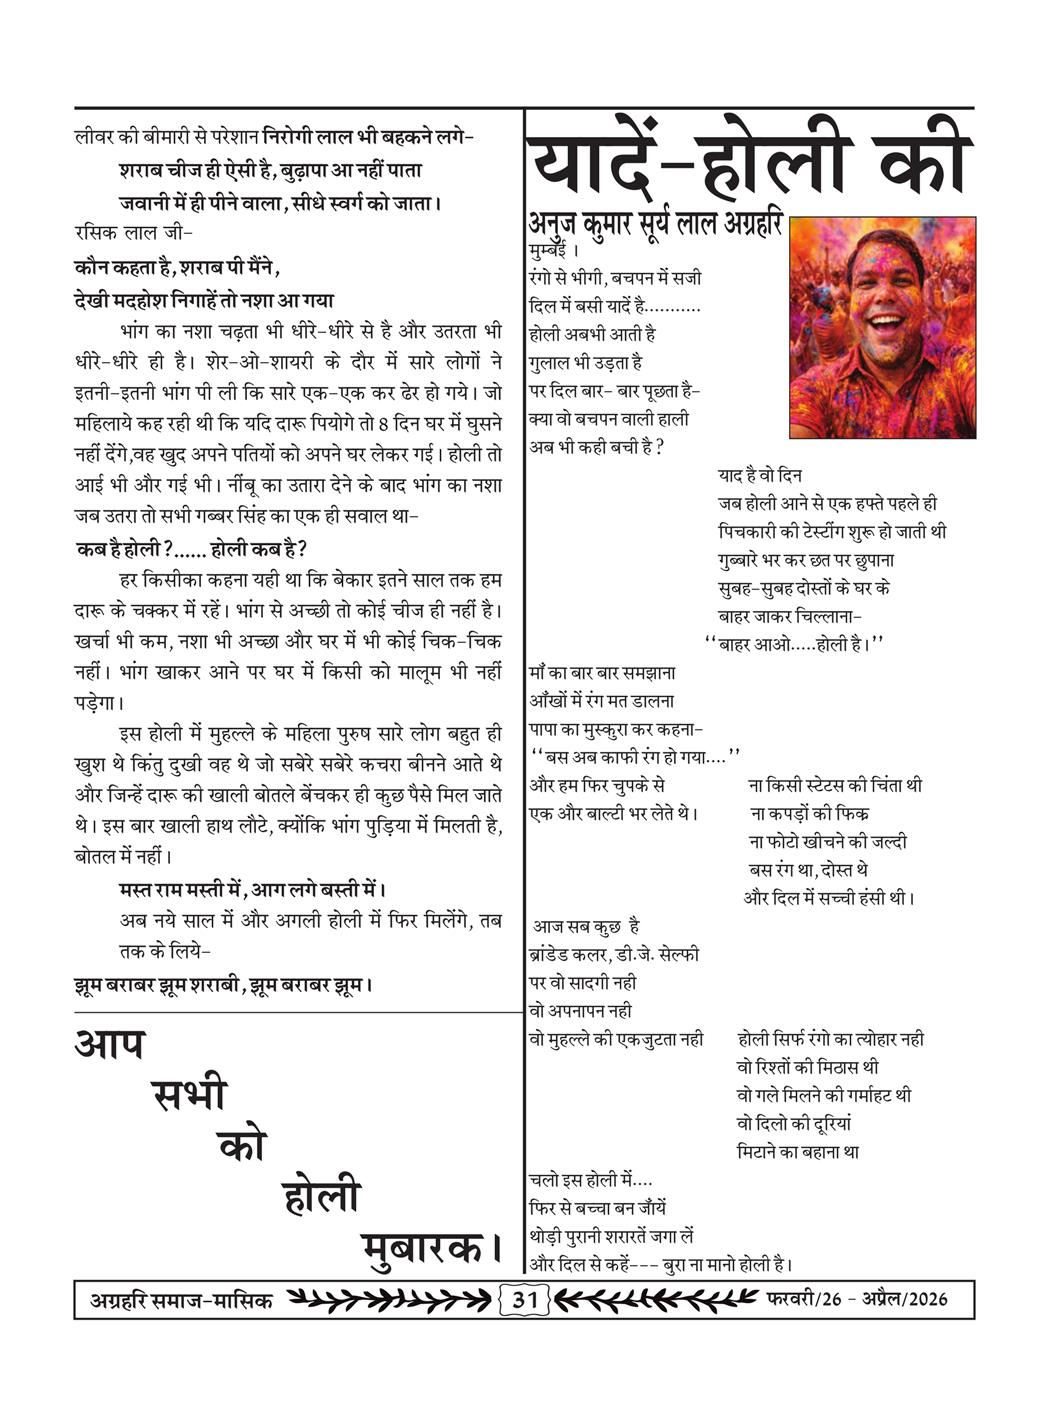 लीवर की बीमारी से परेशान निरोगी लाल भी बहकने लगे-
शराब चीज ही ऐसी है, बुढ़ापा आ नहीं पाता
जवानी में ही पीने वाला, सीधे स्वर्ग को जाता।
रसिक लाल जी-
कौन कहता है, शराब पी मैंने,
देखी मदहोश निगाहें तो नशा आ गया
भांग का नशा चढ़ता भी धीरे-धीरे से है और उतरता भी
धीरे-धीरे ही है। शेर-ओ-शायरी के दौर में सारे लोगों ने
इतनी-इतनी भांग पी ली कि सारे एक-एक कर ढेर हो गये। जो
महिलाये कह रही थी कि यदि दारू पियोगे तो 8 दिन घर में घुसने
नहीं देंगे,वह खुद अपने पतियों को अपने घर लेकर गई। होली तो
आई भी और गई भी। नींबू का उतारा देने के बाद भांग का नशा
जब उतरा तो सभी गब्बर सिंह का एक ही सवाल था-
कब है होली ?...... होली कब है?
हर किसीका कहना यही था कि बेकार इतने साल तक हम
दारू के चक्कर में रहें। भांग से अच्छी तो कोई चीज ही नहीं है।
खर्चा भी कम, नशा भी अच्छा और घर में भी कोई चिक-चिक
नहीं। भांग खाकर आने पर घर में किसी को मालूम भी नहीं
पड़ेगा।
इस होली में मुहल्ले के महिला पुरुष सारे लोग बहुत ही
खुश थे किंतु दुखी वह थे जो सबेरे सबेरे कचरा बीनने आते थे
और जिन्हें दारू की खाली बोतले बेंचकर ही कुछ पैसे मिल जाते
थे। इस बार खाली हाथ लौटे, क्योंकि भांग पुड़िया में मिलती है,
बोतल में नहीं।
मस्त राम मस्ती में, आग लगे बस्ती में।
अब नये साल में और अगली होली में फिर मिलेंगे, तब
तक के लिये-
झूम बराबर झूम शराबी, झूम बराबर झूम।
आप
सभी
को
होली
मुबारक।
यादें-होली की
अनुज कुमार सूर्य लाल अग्रहरि
मुम्बई ।
रंगो से भीगी, बचपन में सजी
दिल में बसी यादें है...........
होली अबभी आती है
गुलाल भी उड़ता है
पर दिल बार- बार पूछता है-
क्या वो बचपन वाली हाली
अब भी कही बची है ?
याद है वो दिन
जब होली आने से एक हफ्ते पहले ही
पिचकारी की टेस्टींग शुरू हो जाती थी
गुब्बारे भर कर छत पर छुपाना
सुबह-सुबह दोस्तों के घर के
बाहर जाकर चिल्लाना-
‘‘बाहर आओ.....होली है।’’
माँ का बार बार समझाना
आँखों में रंग मत डालना
पापा का मुस्कुरा कर कहना-
‘‘बस अब काफी रंग हो गया....’’
और हम फिर चुपके से
एक और बाल्टी भर लेते थे।
ना किसी स्टेटस की चिंता थी
ना कपड़ों की फिक्र
ना फोटो खीचने की जल्दी
बस रंग था, दोस्त थे
और दिल में सच्ची हंसी थी।
आज सब कुछ है
ब्रांडेड कलर, डी.जे. सेल्फी
पर वो सादगी नही
वो अपनापन नही
वो मुहल्ले की एकजुटता नही
होली सिर्फ रंगो का त्योहार नही
वो रिश्तों की मिठास थी
वो गले मिलने की गर्माहट थी
वो दिलो की दूरियां
मिटाने का बहाना था
चलो इस होली में....
फिर से बच्चा बन जाँयें
थोड़ी पुरानी शरारतें जगा लें
और दिल से कहें--- बुरा ना मानो होली है।
अग्रहरि समाज-मासिक
31
फरवरी/26 - अप्रैल/2026